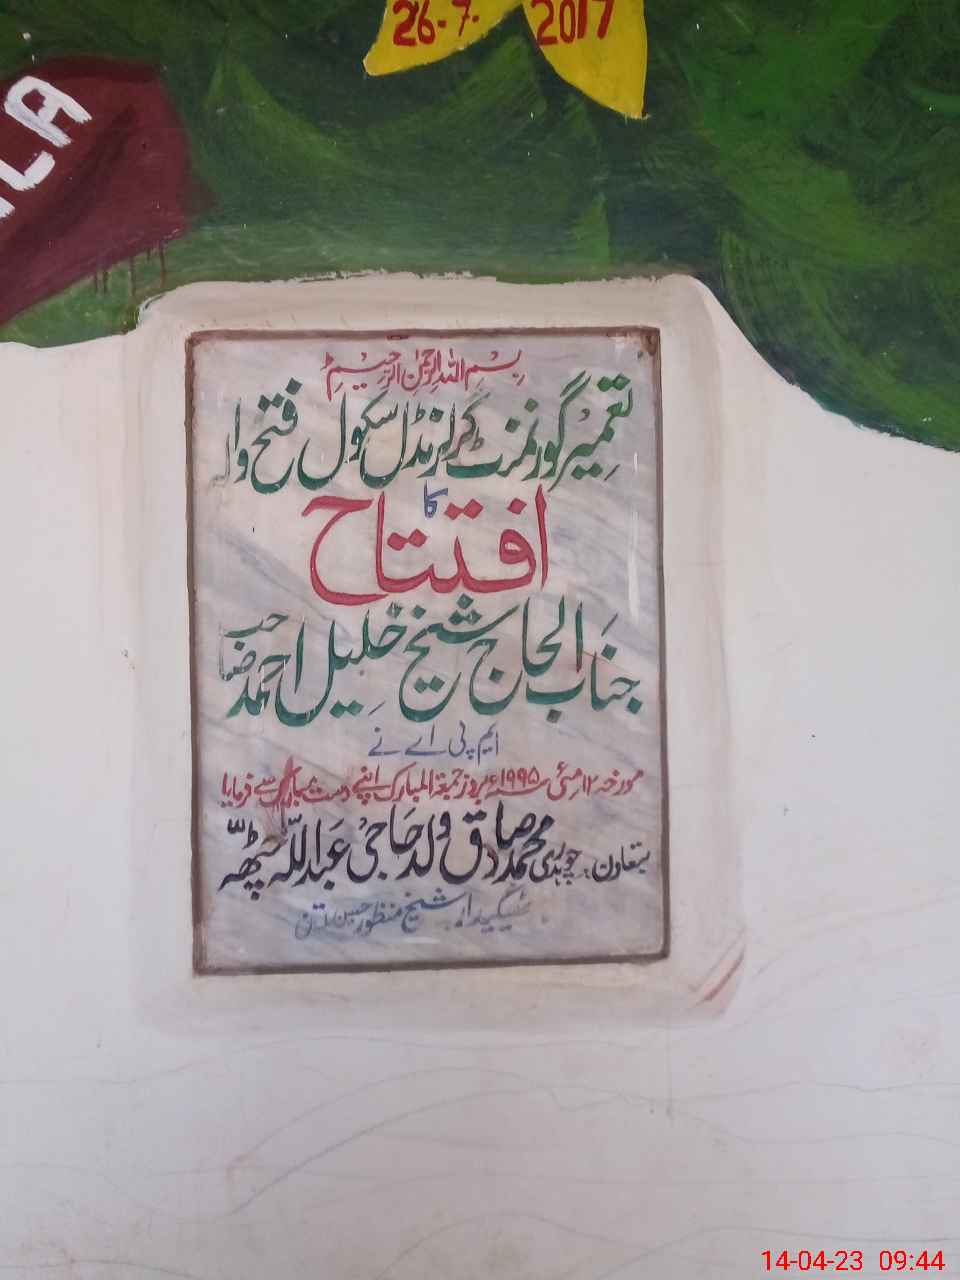 26-7- 2017
LA
بِسْمِ اللهِ الرَّحْمٰنِ الرَّحِيْمِ
تعمیر گورنمنٹ گرلز مڈل سکول فتح والہ
کا
افتتاح
جناب الحاج شیخ خلیل احمد صاحب
ایم پی اے نے
مورخہ ۱۲ مئی ۱۹۹۵ء بروز جمعۃ المبارک اپنے دست مبارک سے فرمایا
بتعاون۔ چوہدری محمد صادق ولد حاجی عبداللہ چٹھہ
ٹھیکیدار شیخ منظور حسین
14-04-23 09:44